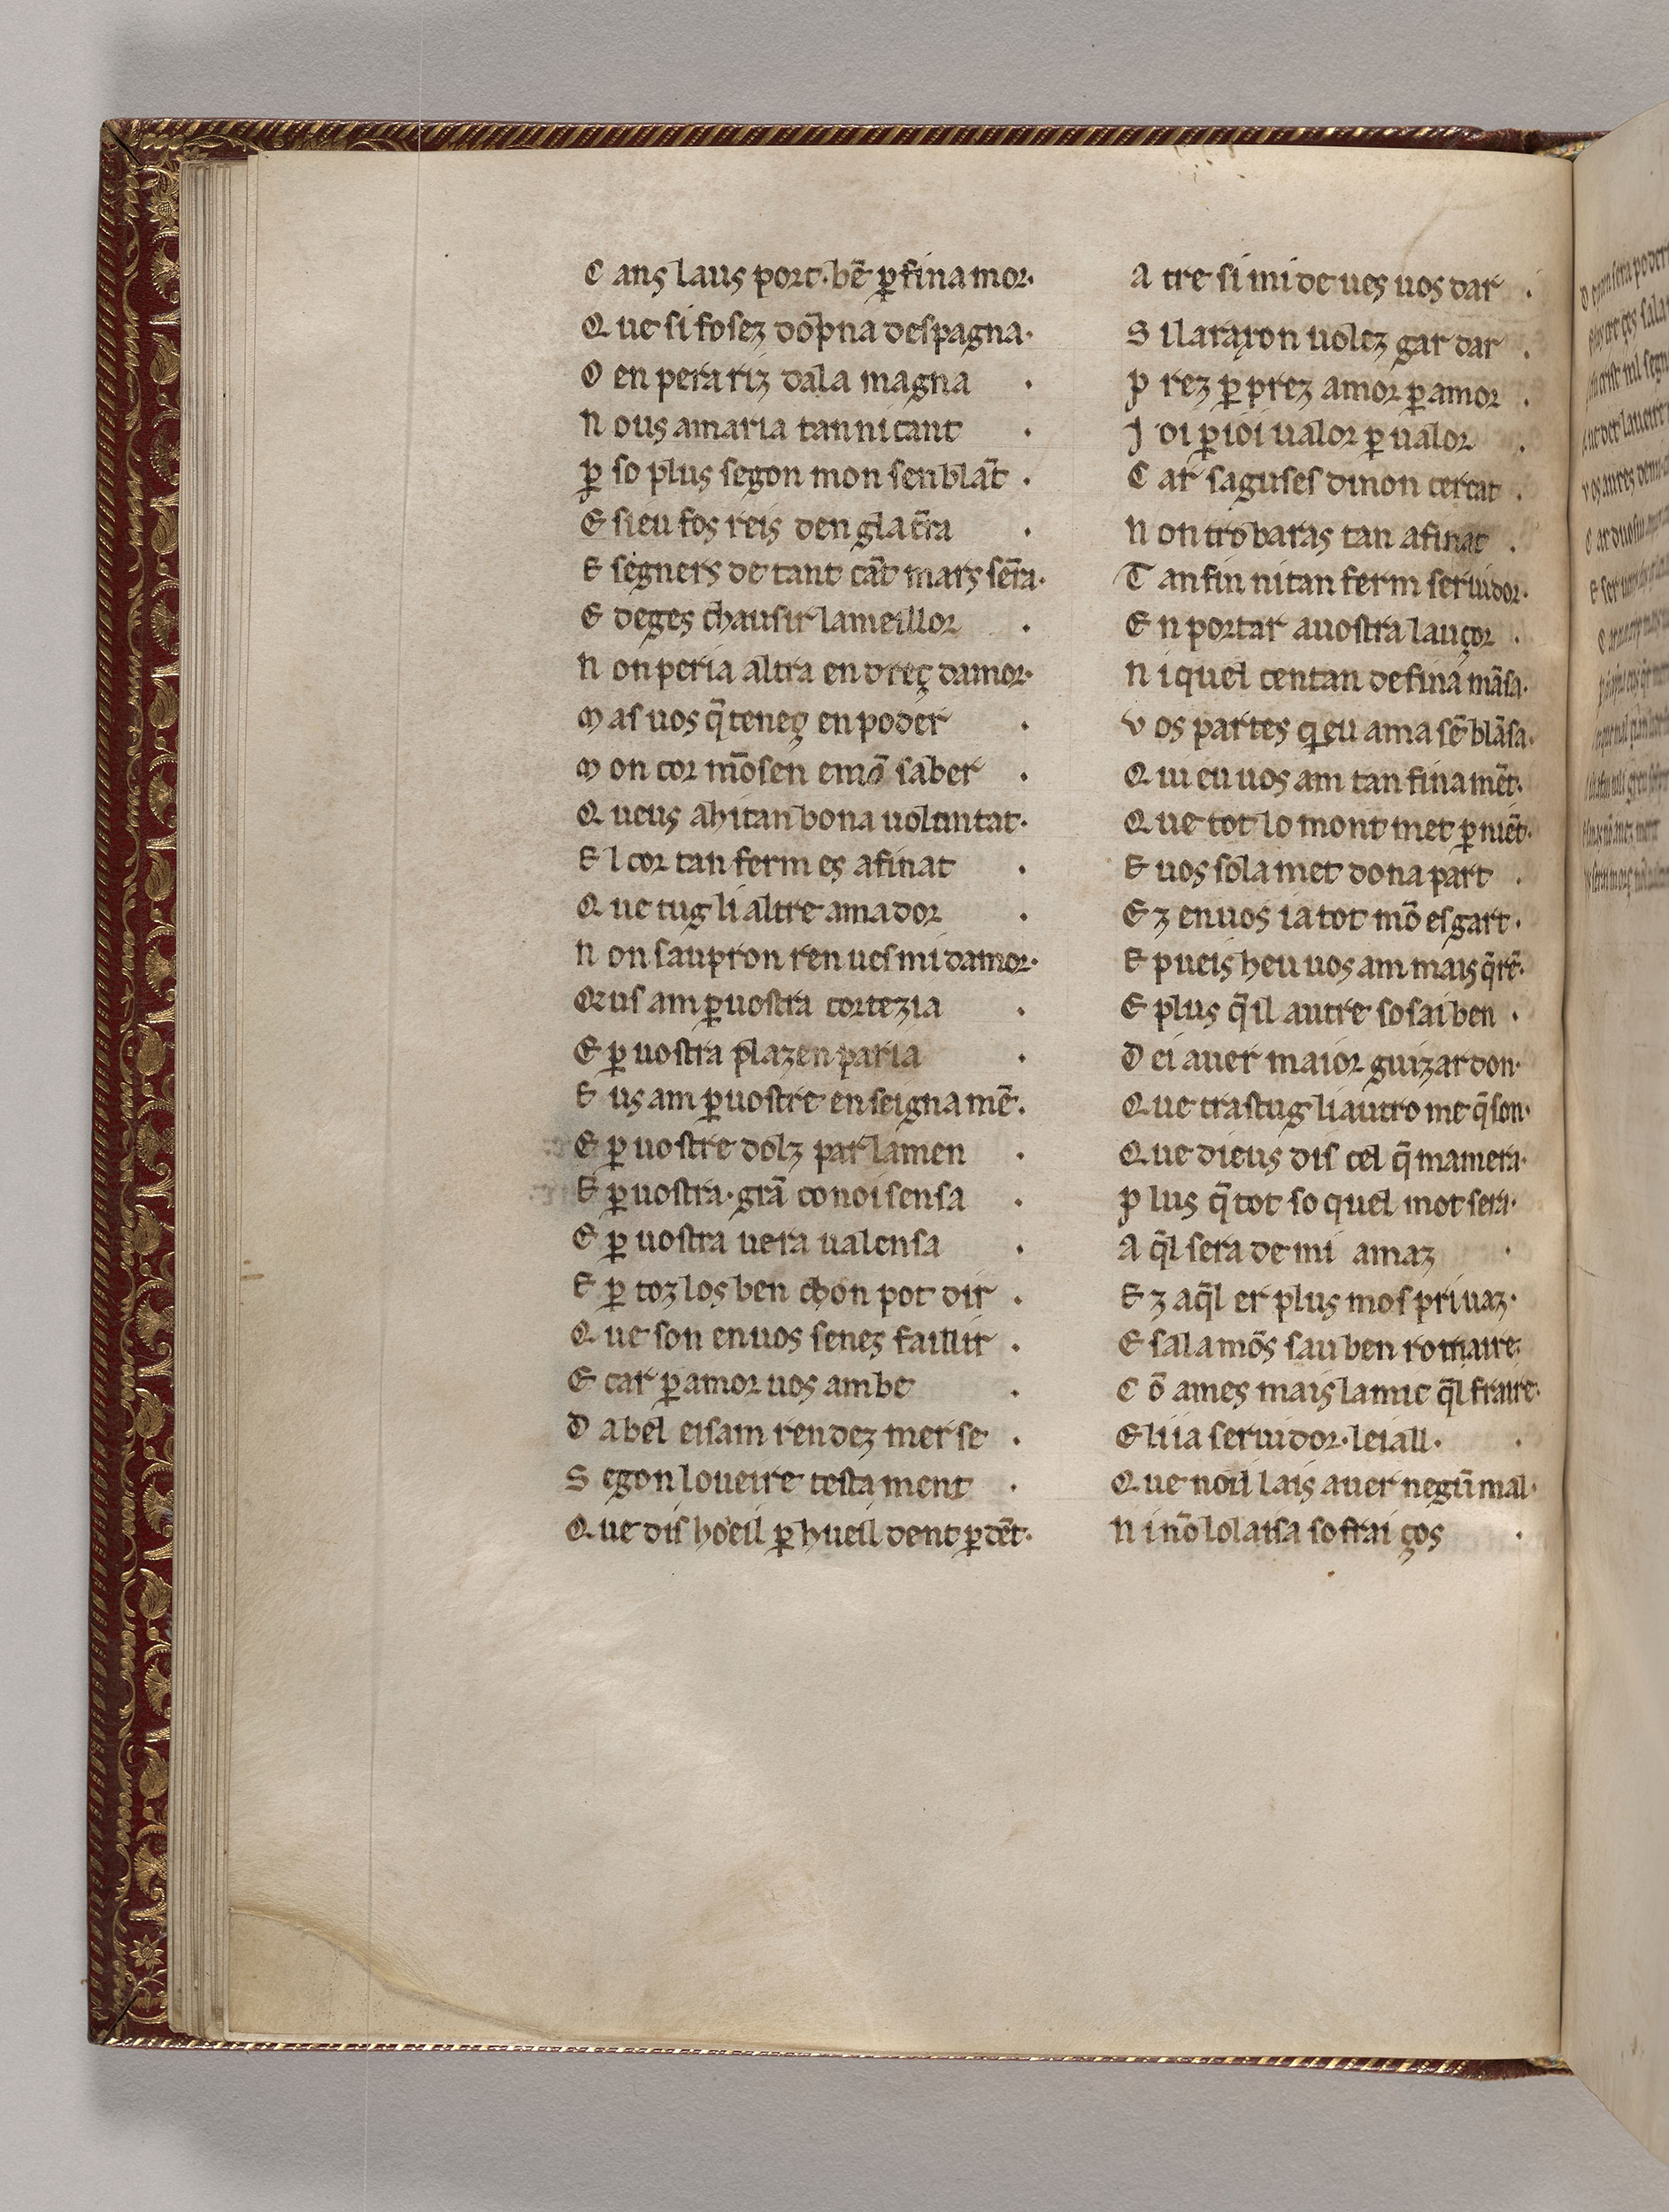 C ans laus port·bē ꝑ finamor·
Q ue si fosez dōpna despagna·
O en perariz dala magna ·
N ous amaria tan ni tant ·
ꝑ so plus segon mon senblāt ·
E si eu fos reis den glat̄ra ·
E segners de tant cāt mars ser̄a·
E deges chausir lameillor ·
N on peria altra en dreç damor·
M as uos q̄ teneç en poder ·
M on cor mōsen emō saber ·
Q ueus ahi tan bona uoluntat·
E l cor tan ferm es afinat ·
Q ue tug li altre amador ·
N on saupron ren ues mi damor·
Q us am ꝑ uostra cortezia ·
E ꝑ uostra plazen paria ·
E us am ꝑ uostre enseignamē·
E ꝑ uostre dolz parlamen ·
E ꝑ uostra·grā conoisensa ·
E ꝑ uostra uera ualensa ·
E ꝑ toz los ben chon pot dir ·
Q ue son en uos senes faillir ·
E car ꝑ amor uos am be ·
D abel eisam rendez merse ·
S egon loueire testament ·
Q ue dis hoeil ꝑ hueil dent ꝑ dēt·
A tre si mi de ues uos dar ·
S i la raxon uolez gardar ·
P rez ꝑ prez amor ꝑ amor ·
J oi ꝑ ioi ualor ꝑ ualor ·
C ar saguses dinon certat ·
N on trobaras tan afinat ·
T an fin ni tan ferm seruidor·
E n portar auostra lauçor ·
N i quel centan de fina māsa·
V os partes qeu ama sē blāsa·
Q iu eu uos am tan finamēt·
Q ue tot lo mont met ꝑ niēt·
E uos sola met dona part ·
E z en uos ia tot mō esgart·
E pueis heu uos am mais q̄ rē·
E plus q̄il autre so sai ben ·
D ei auer maior guizardon·
Q ue trastug li autro me q̄ son·
Q ue dieus dis cel q̄ mamera·
P lus q̄ tot so quel mot sera·
A q̄l sera de mi amaz ·
E z aq̄l er plus mos priuaz·
E salamōs sau ben romaire·
C ō ames mais lamic q̄l fraire·
E li ia seruidor·leiall· ·
Q ue noil lais auer negū mal·
N i nō lo laisa sofrai ços ·